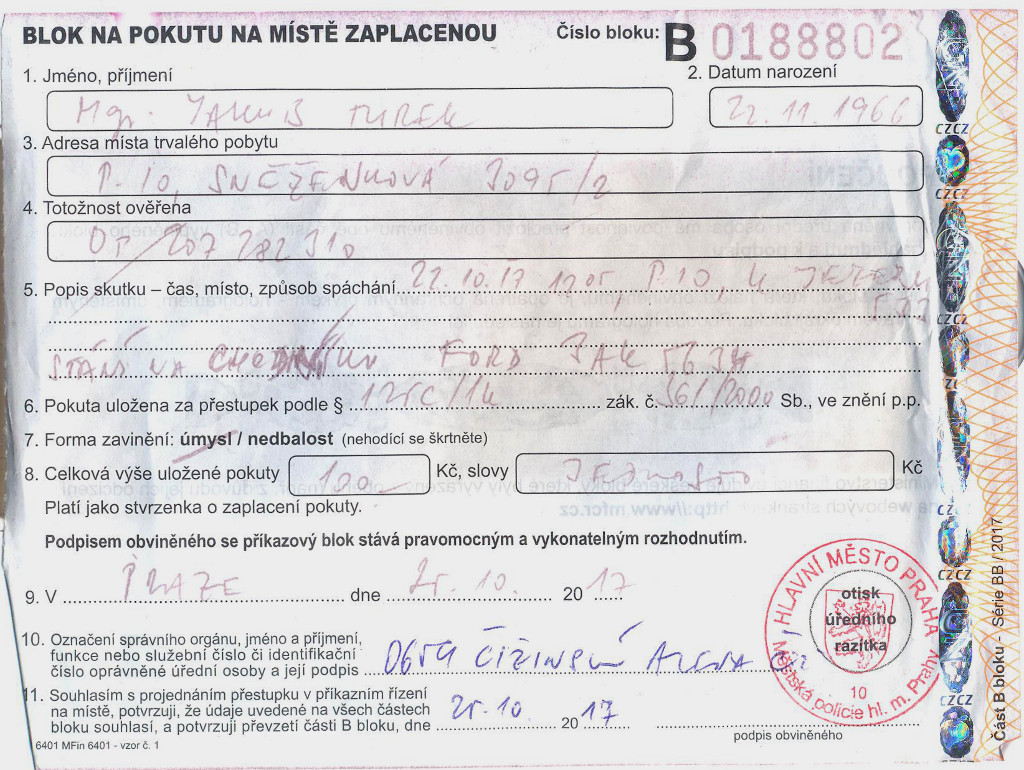 BLOK NA POKUTU NA MÍSTĚ ZAPLACENOU
Číslo bloku: B 0188802
1. Jméno, příjmení
Mgr. JAKUB TUREK
2. Datum narození
22.11.1966
3. Adresa místa trvalého pobytu
P-10, SNĚŽENKOVÁ 3095/2
4. Totožnost ověřena
OP 207282310
5. Popis skutku – čas, místo, způsob spáchání 22.10.17 P-10, U JEZERU
STÁNÍ NA FORD
6. Pokuta uložena za přestupek podle § 125C/1k zák. č. 361/2000 Sb., ve znění p.p.
7. Forma zavinění: úmysl / nedbalost (nehodící se škrtněte)
8. Celková výše uložené pokuty 100 Kč, slovy JEDNOSTO Kč
Platí jako stvrzenka o zaplacení pokuty.
Podpisem obviněného se příkazový blok stává pravomocným a vykonatelným rozhodnutím.
9. V PRAZE dne 25.10. 20 17
10. Označení správního orgánu, jméno a příjmení,
funkce nebo služební číslo či identifikační
číslo oprávněné úřední osoby a její podpis 0659 ČIŽINSKÝ
11. Souhlasím s projednáním přestupku v příkazním řízení
na místě, potvrzuji, že údaje uvedené na všech částech
bloku souhlasí, a potvrzuji převzetí části B bloku, dne 25.10. 20 17
podpis obviněného
6401 MFin 6401 - vzor č. 1
HLAVNÍ MĚSTO PRAHA
Městská policie hl. m. Prahy
10
otisk
úředního
razítka
Část B bloku - Série BB / 2017
CZCZ
CZCZ
CZCZ
CZCZ
CZCZ